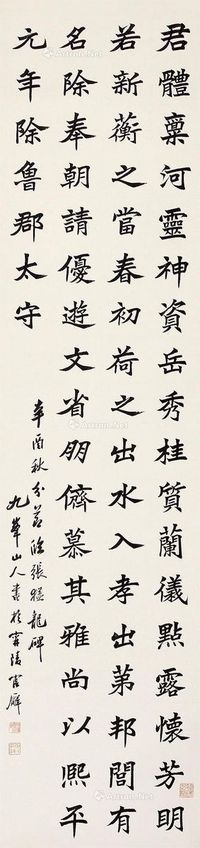 君體稟河靈神資岳秀桂質蘭儀點露懷芳明
若新蘅之當春初荷之出水入孝出第邦閭有
名除奉朝請優遊文省朋儕慕其雅尚以熙平
元年除魯郡太守
辛酉秋分若臨張猛龍碑
九峯山人書於寧陵官廨